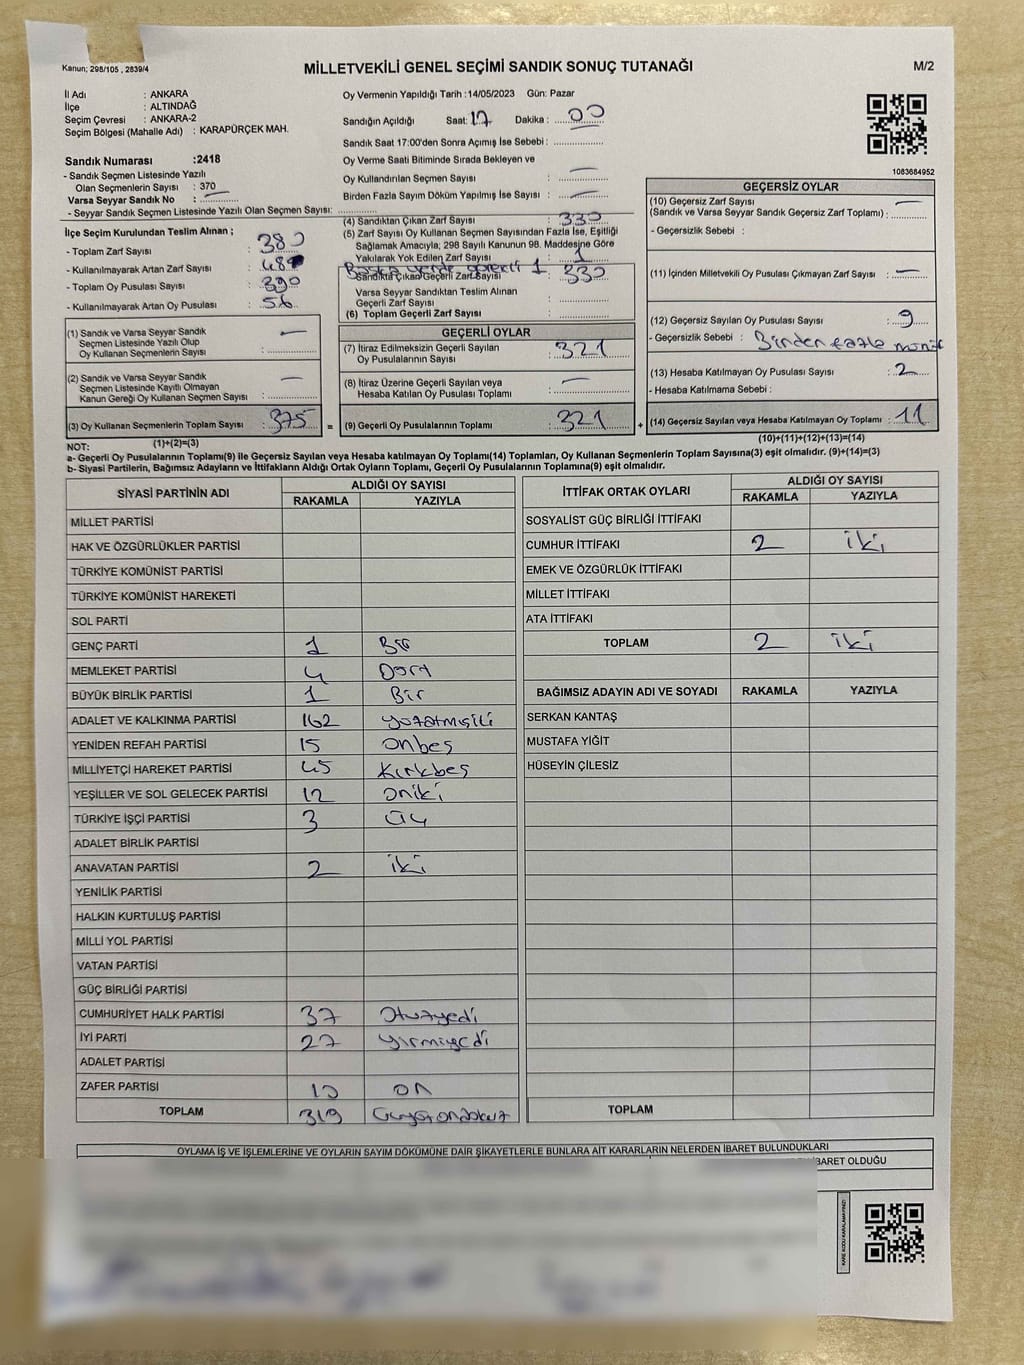 Kanun; 298/105 , 2839/4
MİLLETVEKİLİ GENEL SEÇİMİ SANDIK SONUÇ TUTANAĞI
M/2
İl Adı : ANKARA
İlçe : ALTINDAĞ
Seçim Çevresi : ANKARA-2
Seçim Bölgesi (Mahalle Adı) : KARAPÜRÇEK MAH.
Sandık Numarası :2418
- Sandık Seçmen Listesinde Yazılı
Olan Seçmenlerin Sayısı : 370
Varsa Seyyar Sandık No :
- Seyyar Sandık Seçmen Listesinde Yazılı Olan Seçmen Sayısı:
İlçe Seçim Kurulundan Teslim Alınan ;
- Toplam Zarf Sayısı : 380
- Kullanılmayarak Artan Zarf Sayısı :
- Toplam Oy Pusulası Sayısı : 390
- Kullanılmayarak Artan Oy Pusulası : 56
(1) Sandık ve Varsa Seyyar Sandık
Seçmen Listesinde Yazılı Olup
Oy Kullanan Seçmenlerin Sayısı : —
(2) Sandık ve Varsa Seyyar Sandık
Seçmen Listesinde Kayıtlı Olmayan
Kanun Gereği Oy Kullanan Seçmen Sayısı : —
(3) Oy Kullanan Seçmenlerin Toplam Sayısı : 375
(1)+(2)=(3)
Oy Vermenin Yapıldığı Tarih :14/05/2023 Gün: Pazar
Sandığın Açıldığı Saat: 17 Dakika : 00
Sandık Saat 17:00'den Sonra Açımış İse Sebebi :
Oy Verme Saati Bitiminde Sırada Bekleyen ve
Oy Kullandırılan Seçmen Sayısı : —
Birden Fazla Sayım Döküm Yapılmış İse Sayısı : —
(4) Sandıktan Çıkan Zarf Sayısı : 330
(5) Zarf Sayısı Oy Kullanan Seçmen Sayısından Fazla İse, Eşitliği
Sağlamak Amacıyla; 298 Sayılı Kanunun 98. Maddesine Göre
Yakılarak Yok Edilen Zarf Sayısı : 1
Sandıkta Çıkan Geçerli Zarf Sayısı : 330
Varsa Seyyar Sandıktan Teslim Alınan
Geçerli Zarf Sayısı :
(6) Toplam Geçerli Zarf Sayısı :
GEÇERLİ OYLAR
(7) İtiraz Edilmeksizin Geçerli Sayılan
Oy Pusulalarının Sayısı : 321
(8) İtiraz Üzerine Geçerli Sayılan veya
Hesaba Katılan Oy Pusulası Toplamı : —
= (9) Geçerli Oy Pusulalarının Toplamı : 321 +
1083684952
GEÇERSİZ OYLAR
(10) Geçersiz Zarf Sayısı
(Sandık ve Varsa Seyyar Sandık Geçersiz Zarf Toplamı) : —
- Geçersizlik Sebebi :
(11) İçinden Milletvekili Oy Pusulası Çıkmayan Zarf Sayısı : —
(12) Geçersiz Sayılan Oy Pusulası Sayısı : 9
- Geçersizlik Sebebi : Birden fazla
(13) Hesaba Katılmayan Oy Pusulası Sayısı : 2
- Hesaba Katılmama Sebebi :
(14) Geçersiz Sayılan veya Hesaba Katılmayan Oy Toplamı : 11
(10)+(11)+(12)+(13)=(14)
NOT:
a- Geçerli Oy Pusulalarının Toplamı(9) ile Geçersiz Sayılan veya Hesaba Katılmayan Oy Toplamı(14) Toplamları, Oy Kullanan Seçmenlerin Toplam Sayısına(3) eşit olmalıdır. (9)+(14)=(3)
b- Siyasi Partilerin, Bağımsız Adayların ve İttifakların Aldığı Ortak Oyların Toplamı, Geçerli Oy Pusulalarının Toplamına(9) eşit olmalıdır.
SİYASİ PARTİNİN ADI ALDIĞI OY SAYISI
RAKAMLA YAZIYLA
MİLLET PARTİSİ
HAK VE ÖZGÜRLÜKLER PARTİSİ
TÜRKİYE KOMÜNİST PARTİSİ
TÜRKİYE KOMÜNİST HAREKETİ
SOL PARTİ
GENÇ PARTİ 1 Bir
MEMLEKET PARTİSİ 4 Dört
BÜYÜK BİRLİK PARTİSİ 1 Bir
ADALET VE KALKINMA PARTİSİ 162 yüzatmışiki
YENİDEN REFAH PARTİSİ 15 onbeş
MİLLİYETÇİ HAREKET PARTİSİ 45 Kırkbeş
YEŞİLLER VE SOL GELECEK PARTİSİ 12 oniki
TÜRKİYE İŞÇİ PARTİSİ 3 üç
ADALET BİRLİK PARTİSİ
ANAVATAN PARTİSİ 2 iki
YENİLİK PARTİSİ
HALKIN KURTULUŞ PARTİSİ
MİLLİ YOL PARTİSİ
VATAN PARTİSİ
GÜÇ BİRLİĞİ PARTİSİ
CUMHURİYET HALK PARTİSİ 37 otuzyedi
İYİ PARTİ 27 yirmiyedi
ADALET PARTİSİ
ZAFER PARTİSİ 10 on
TOPLAM 319 üçyüzondokuz
İTTİFAK ORTAK OYLARI ALDIĞI OY SAYISI
RAKAMLA YAZIYLA
SOSYALİST GÜÇ BİRLİĞİ İTTİFAKI
CUMHUR İTTİFAKI 2 iki
EMEK VE ÖZGÜRLÜK İTTİFAKI
MİLLET İTTİFAKI
ATA İTTİFAKI
TOPLAM 2 iki
BAĞIMSIZ ADAYIN ADI VE SOYADI RAKAMLA YAZIYLA
SERKAN KANTAŞ
MUSTAFA YİĞİT
HÜSEYİN ÇİLESİZ
TOPLAM
OYLAMA İŞ VE İŞLEMLERİNE VE OYLARIN SAYIM DÖKÜMÜNE DAİR ŞİKAYETLERLE BUNLARA AİT KARARLARIN NELERDEN İBARET BULUNDUKLARI
İBARET OLDUĞU